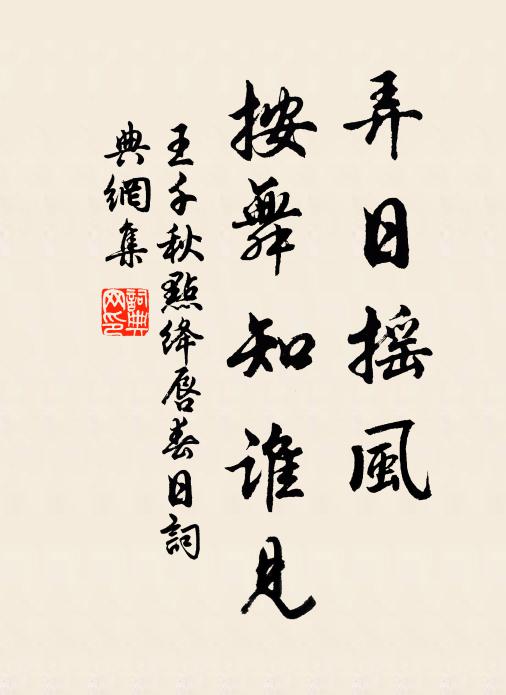 弄日搖風
按舞知誰見
王千秋點絳唇春日詞
典網集
詞典
网印